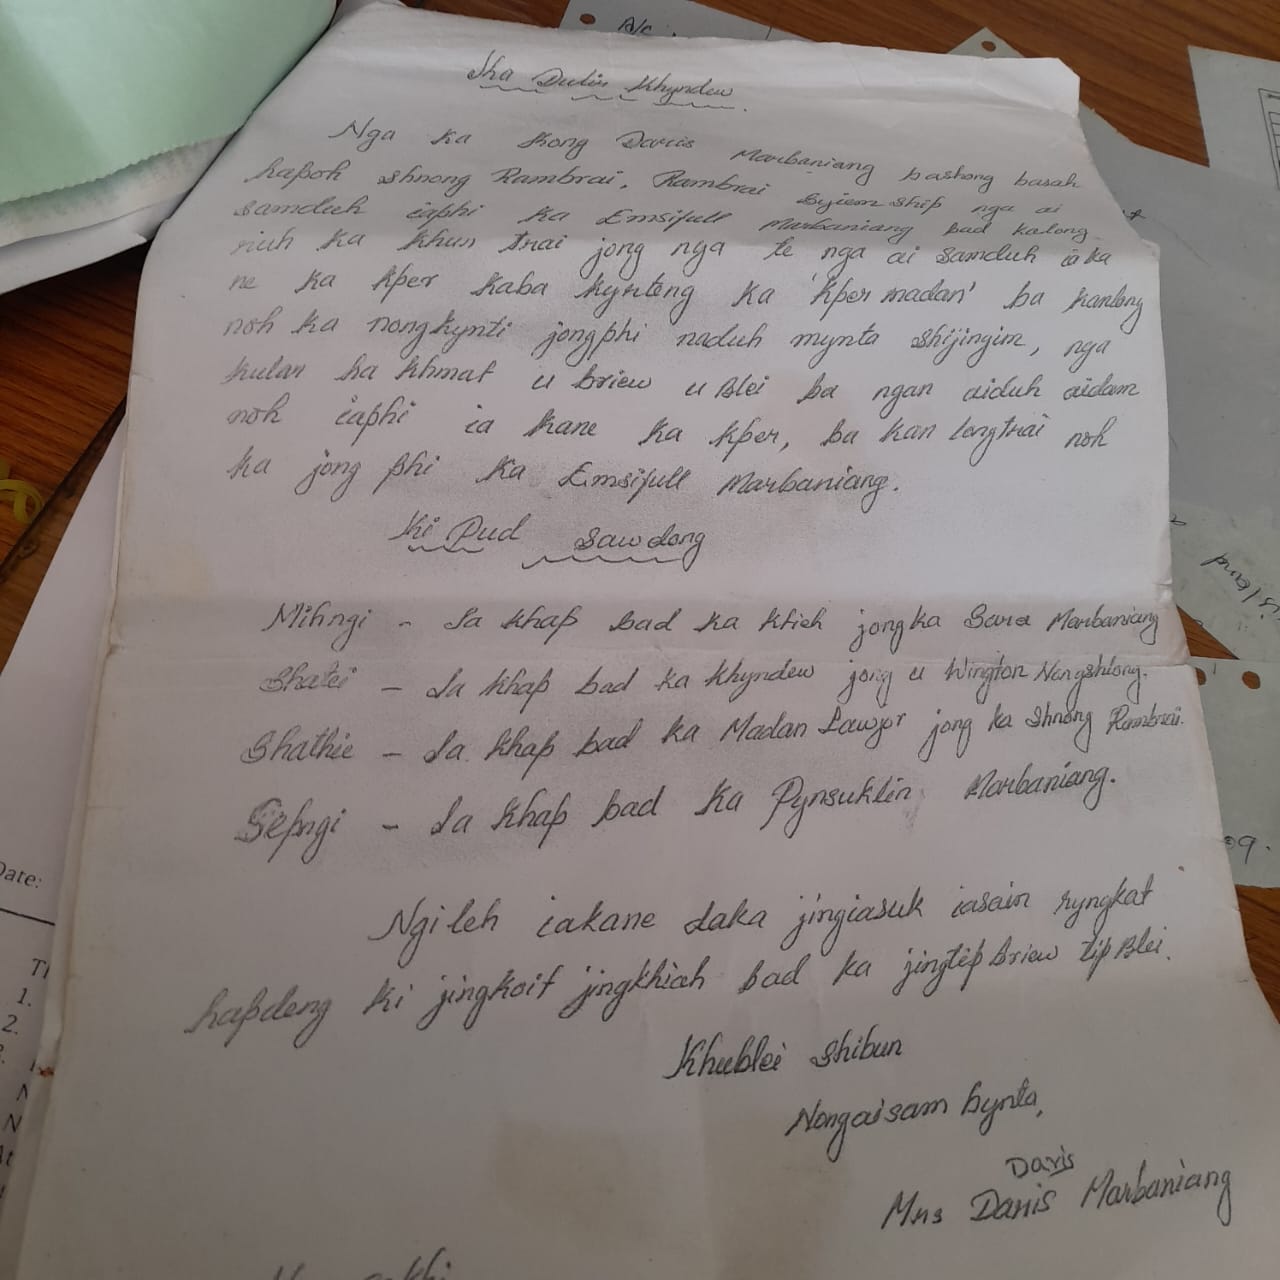 Ka Dulir Khyndew
Nga ka Kong Daris Marbaniang bashong basah
hapoh shnong Rambrai, Rambrai Syiem ship nga ai
samduh iaphi ka Emsifull Marbaniang bad kalong
ruh ka khun trai jong nga te nga ai samduh ia ka
ne ka kper kaba kynteng ka 'kper madan' ba kanlong
noh ka nongkynti jongphi naduh mynta shijingim, nga
kular ha khmat u briew u Blei ba ngan aiduh aidam
noh iaphi ia kane ka kper, ba kan longtrai noh
ka jong phi ka Emsifull Marbaniang.
Ki Pud sawdong
Mihngi - Ia khap bad ka ktieh jongka Sara Marbaniang
Shatei - Ia khap bad ka khyndew jong u Wington Nongshlong.
Shathie - Ia khap bad ka Madan Lawjor jong ka shnong Rambrai.
Sepngi - Ia khap bad ka Pynsuklin Marbaniang.
Ngi leh iakane daka jingiasuk iasain ryngkat
hapdeng ki jingkoit jingkhiah bad ka jingtip briew tip Blei.
Khublei shibun
Nongaisam bynta,
Daris
Mrs Daris Marbaniang
Date:
1.
2.
09.